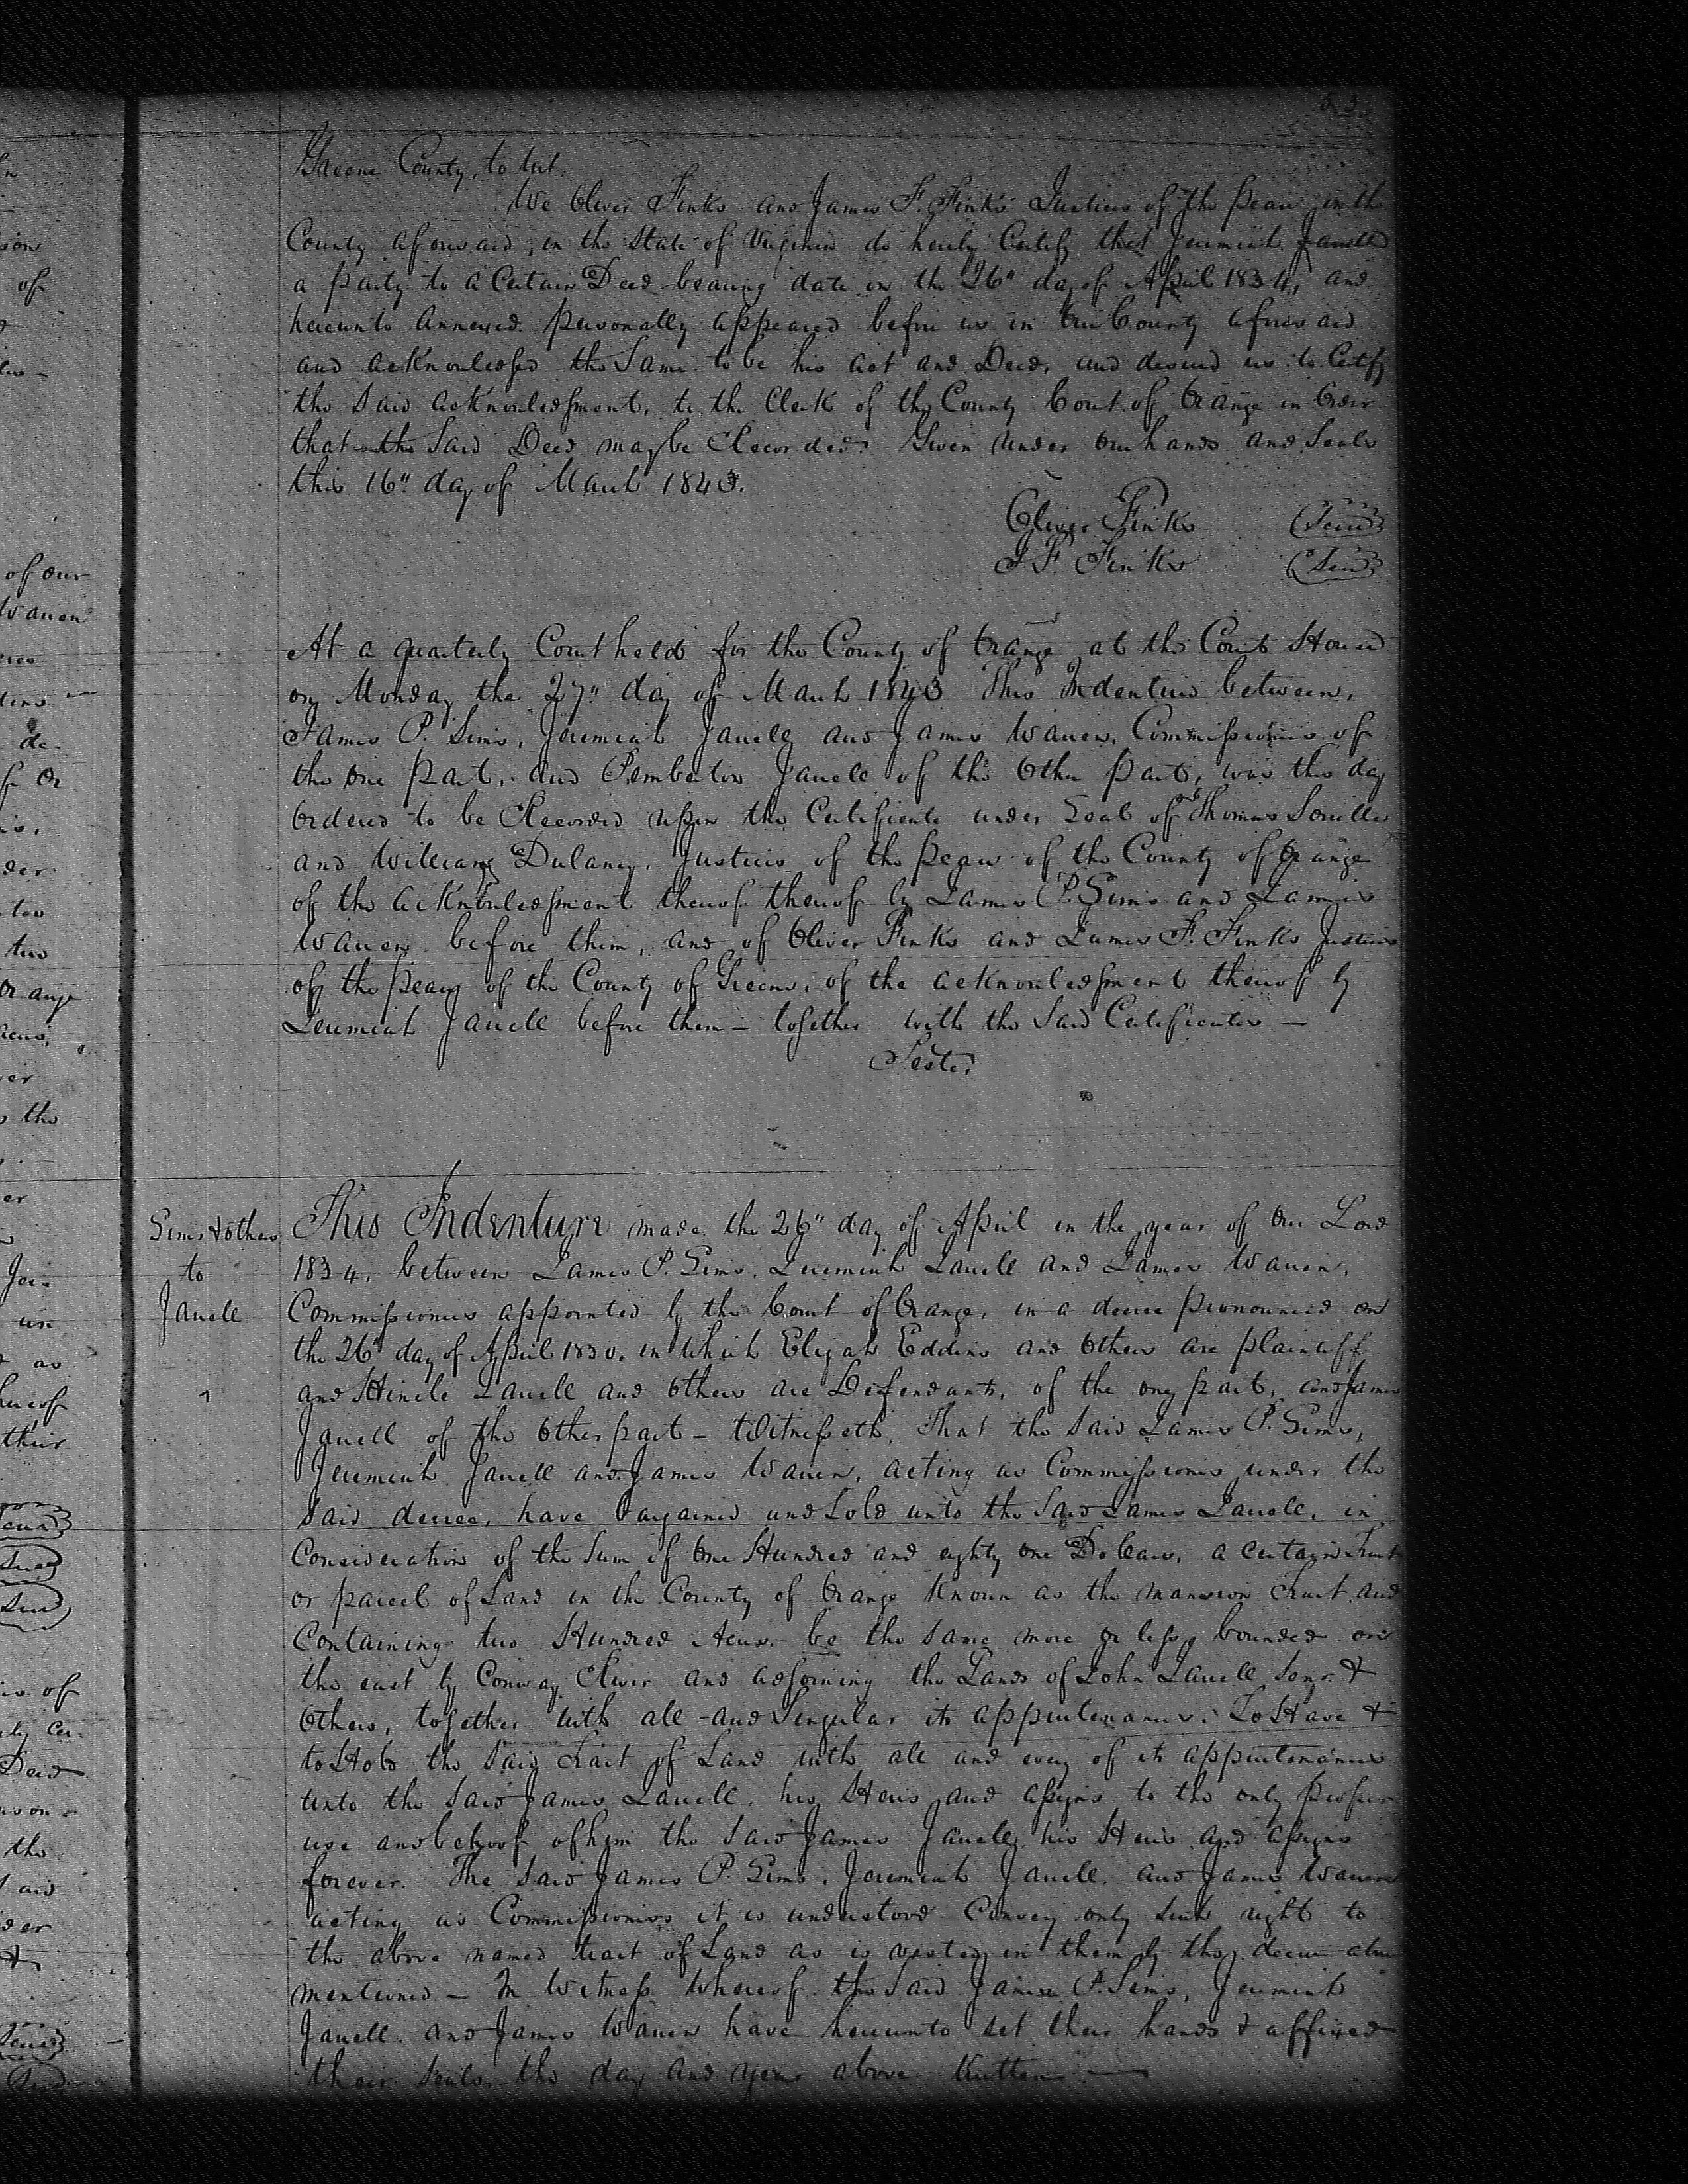 53
Greene County, to wit,
We Oliver Finks and James F. Finks Justices of the peace in the
County aforesaid, in the State of Virginia do hereby Certify that Jeremiah Jarrell
a party to a Certain Deed bearing date on the 26" day of April 1834, and
hereunto annexed personally appeared before us in Our County aforesaid
and acknowledged the Same to be his act and Deed, and desired us to Certify
the Said acknowledgment, to the Clerk of the County Court of Orange in Order
that the Said Deed may be Recorded. Given under Our hands and Seals
this 16" day of March 1843.
Oliver Finks (Seal)
J F. Finks (Seal)
At a quarterly Court held for the County of Orange at the Court House
on Monday the 27" day of March 1843 This Indenture between,
James P. Sims, Jeremiah Jarrell and James Warren, Commissioners of
the One Part, and Pemberton Jarrell of the Other Part, was this day
Ordered to be Recorded upon the Certificate under Seal of Thomas
and William Dulaney, Justices of the peace of the County of Orange
of the acknowledgment thereof thereof by James P. Sims and James
Warren before them, and of Oliver Finks and James F. Finks Justices
of the peace of the County of Greene, of the acknowledgment thereof by
Jeremiah Jarrell before them – together with the Said Certificates –
Teste,
Sims & others
to
Jarrell
This Indenture made the 26" day of April in the year of Our Lord
1834, between James P. Sims, Jeremiah Jarrell and James Warren,
Commissioners appointed by the Court of Orange, in a decree pronounced on
the 26" day of April 1830, in which Elijah Eddins and Others are plaintiff
and Jarrell and Others are Defendants, of the one part, and James
Jarrell of the Other part – Witnesseth, That the Said James P. Sims,
Jeremiah Jarrell and James Warren, acting as Commissioners under the
Said decree, have bargained and Sold unto the Said James Jarrell, in
Consideration of the Sum of One Hundred and eighty one Dollars, a certain Tract
or parcel of Land in the County of Orange Known as the mansion Tract and
Containing two Hundred Acres, be the same more or less, bounded on
the east by Conway River and adjoining the Lands of John Jarrell Senr. &
Others, together with all and Singular its appurtenances. To Have &
to Hold the Said Tract of Land with all and every of its appurtenances
unto the Said James Jarrell, his Heirs and assigns to the only proper
use and behoof of him the Said James Jarrell, his Heirs and assigns
forever. The Said James P. Sims, Jeremiah Jarrell and James Warren
acting as Commissioners it is understood Convey only such right to
the above named tract of Land as is vested in them by the decree above
mentioned – In Witness Whereof the Said James P. Sims, Jeremiah
Jarrell, and James Warren have hereunto set their hands & affixed
their seals, the day and year above Written –